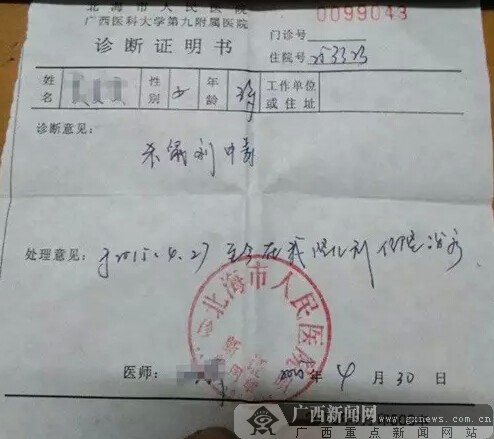 北海市人民医院
广西医科大学第九附属医院
0099043
诊断证明书
门诊号
住院号 253323
姓名 性别 女 年龄 工作单位或住址
诊断意见：
杀鼠剂中毒
处理意见： 于2015.4.27 至今在我 住院治疗
北海市人民医院
医师： 2015年 4 月 30 日
广西新闻网
www.gxnews.com.cn
广西重点新闻网站